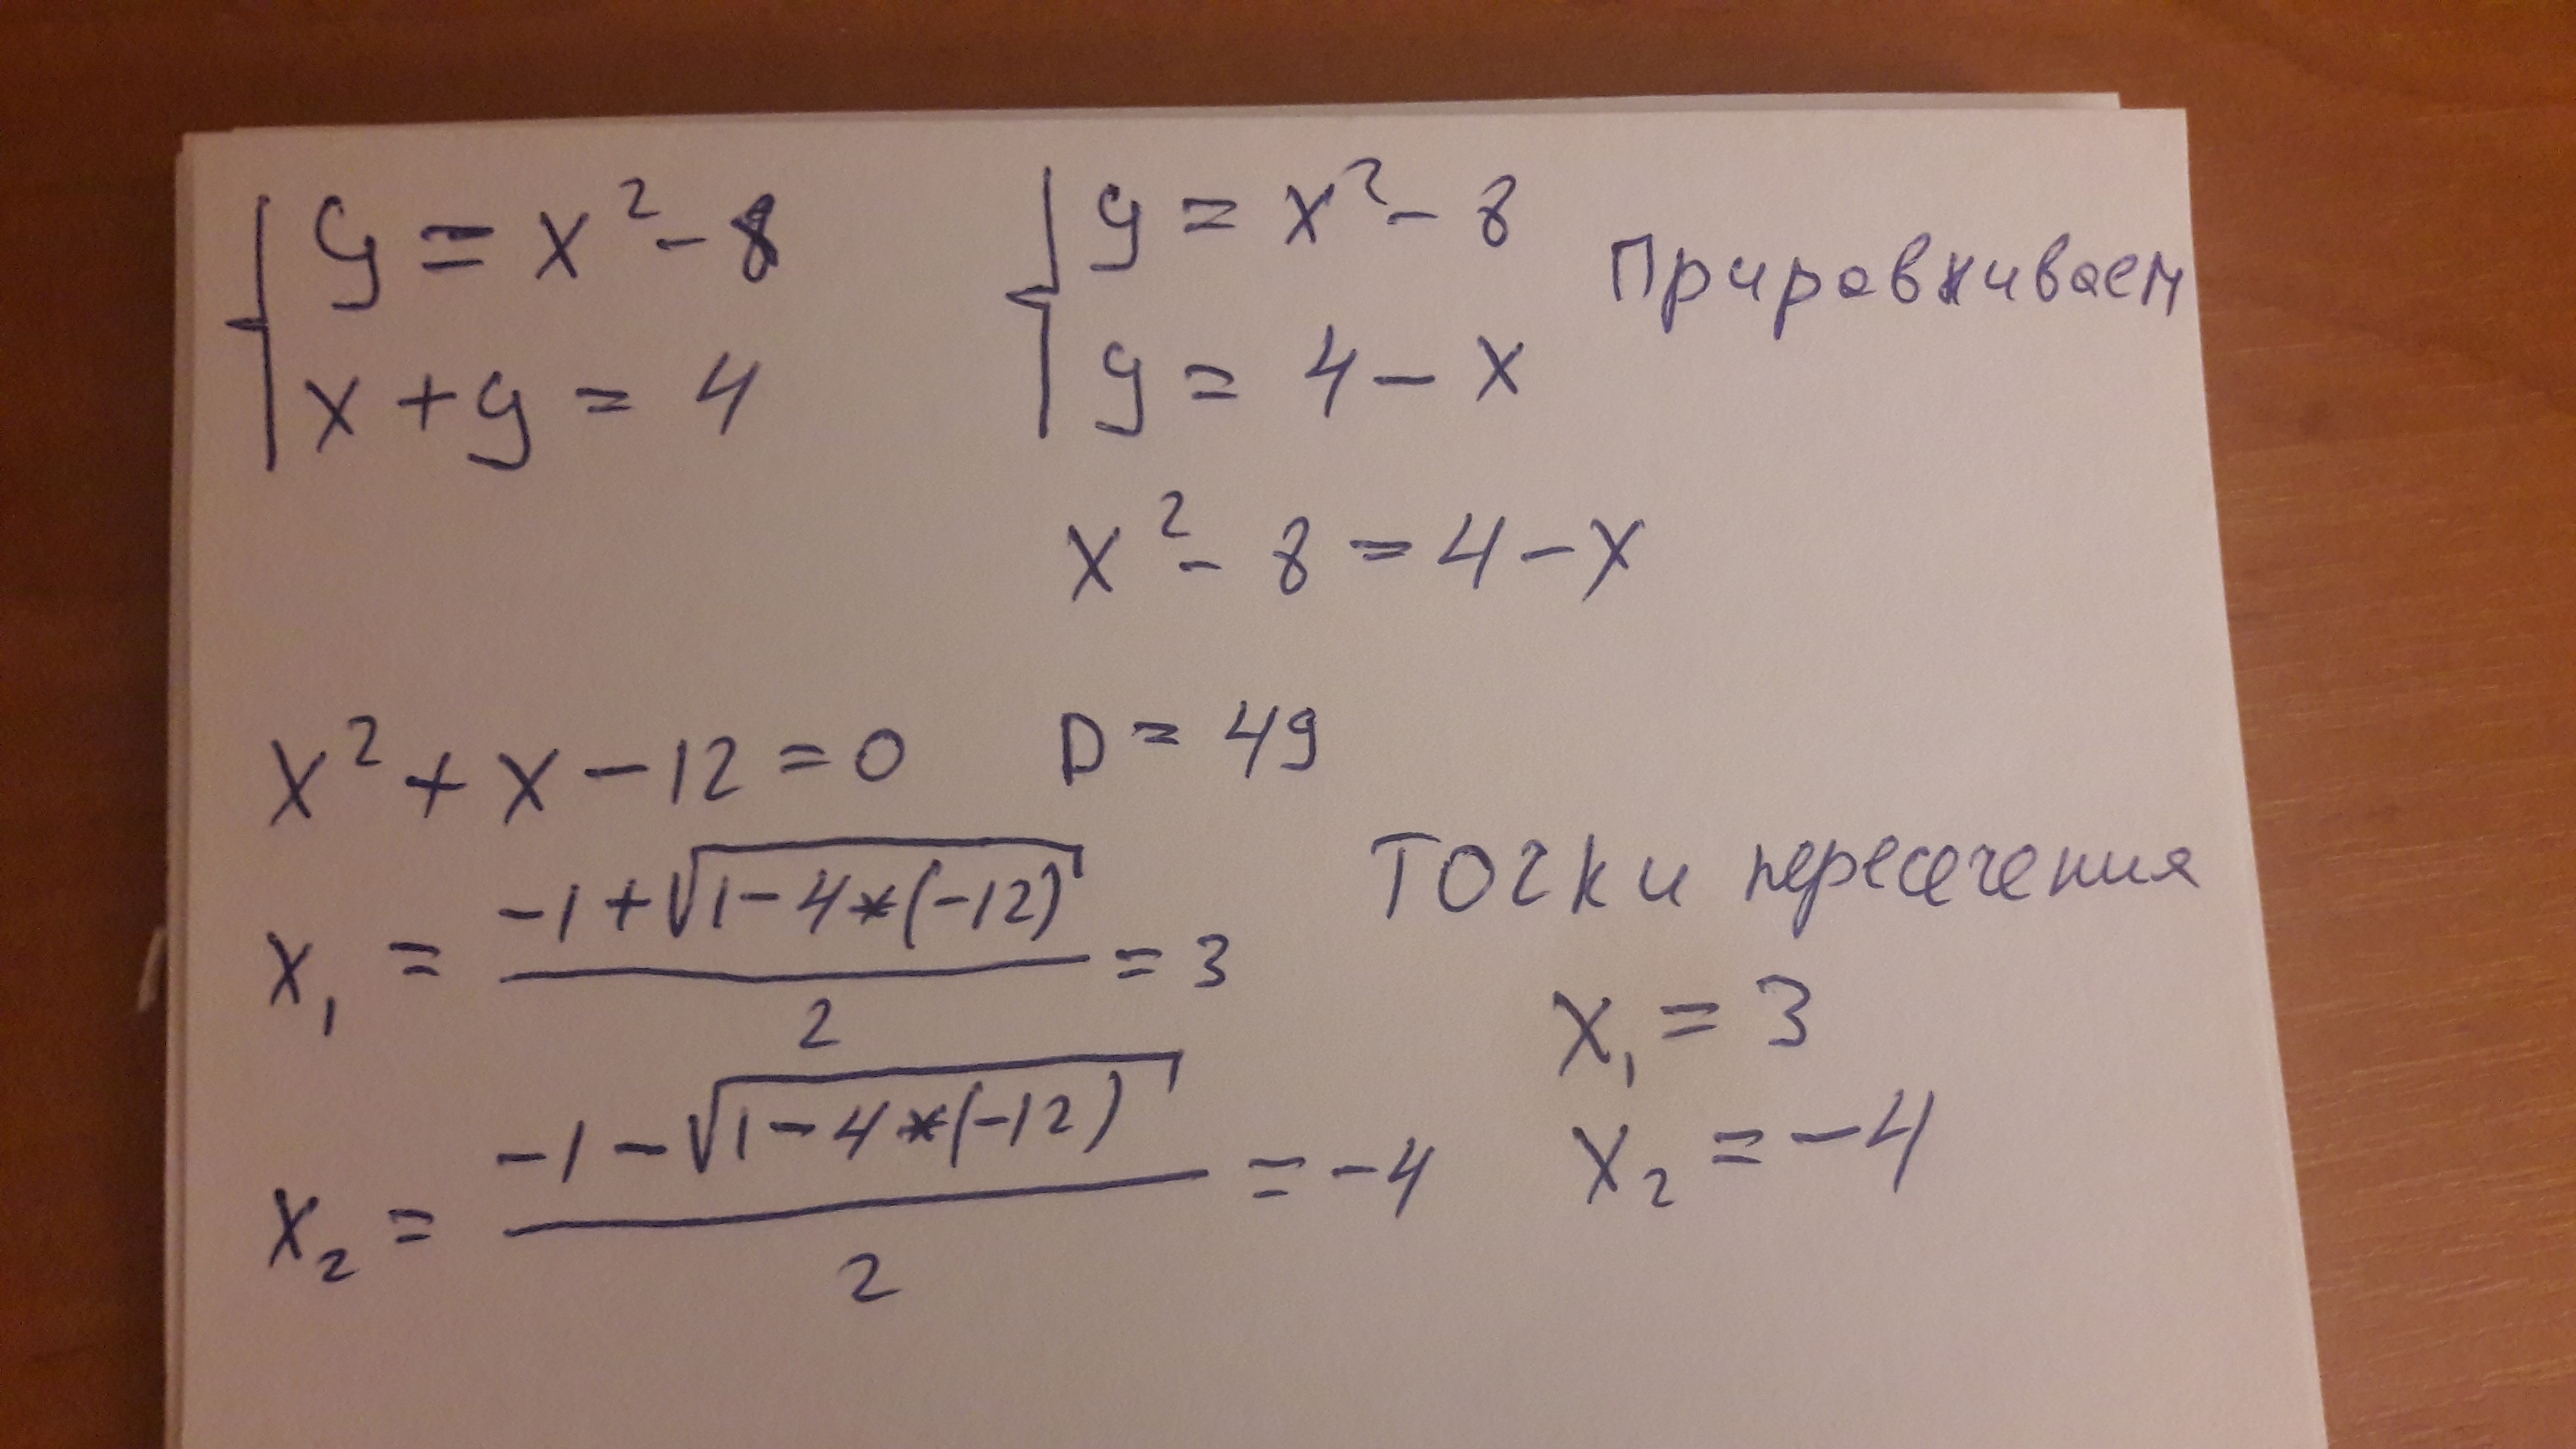 { y = x² - 8
x + y = 4
{ y = x² - 8
y = 4 - x
Приравниваем
x² - 8 = 4 - x
x² + x - 12 = 0
D = 49
x₁ = (-1 + √(1 - 4 * (-12))) / 2 = 3
x₂ = (-1 - √(1 - 4 * (-12))) / 2 = -4
Точки пересечения
x₁ = 3
x₂ = -4